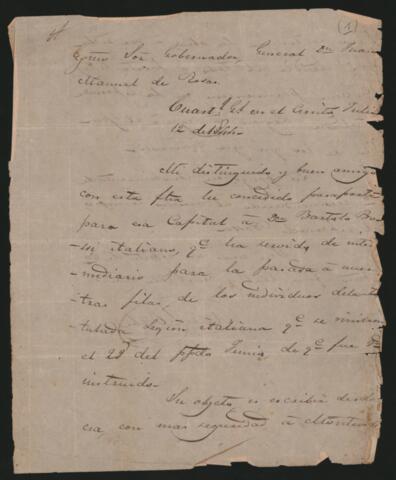 1
Exmo Sor Gobernador, General Dn Juan
Manuel de Rosas
Cuartl Gl en el Cerrito Julio
12 de 184
Mi distinguido y buen amigo
con esta fha he concedido pasaporte
para esa Capital à Dn Bartolo
italiano, qe ha servido de inter
-mediario para la pasada à nues
-tras filas, de los individuos de la ti
-tulada Legión italiana qe se
el 29 del ppdo Junio, de qe fue V.
instruido.
Su objeto, es escribir desde
esa, con mas seguridad à Montevideo